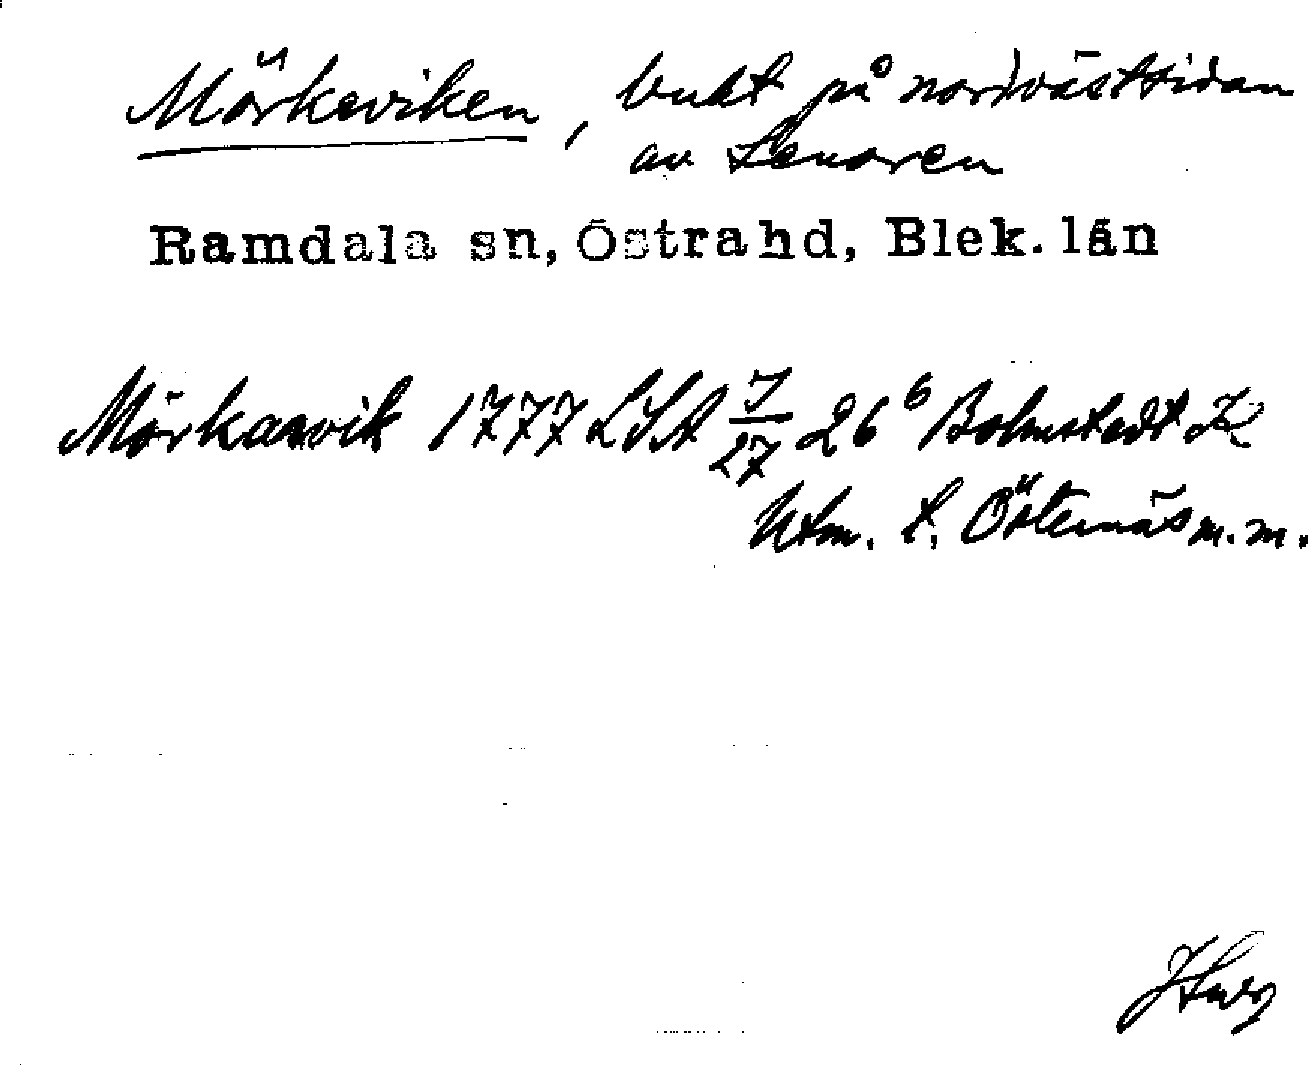 Mörkeviken, bukt på nordvästsidan
av Lenoren
Ramdala sn, Östra hd, Blek. län
Mörkarvik 1777 LSA J/27 26⁶ Bolmstedt K
Utm. t. Östernäs m.m.